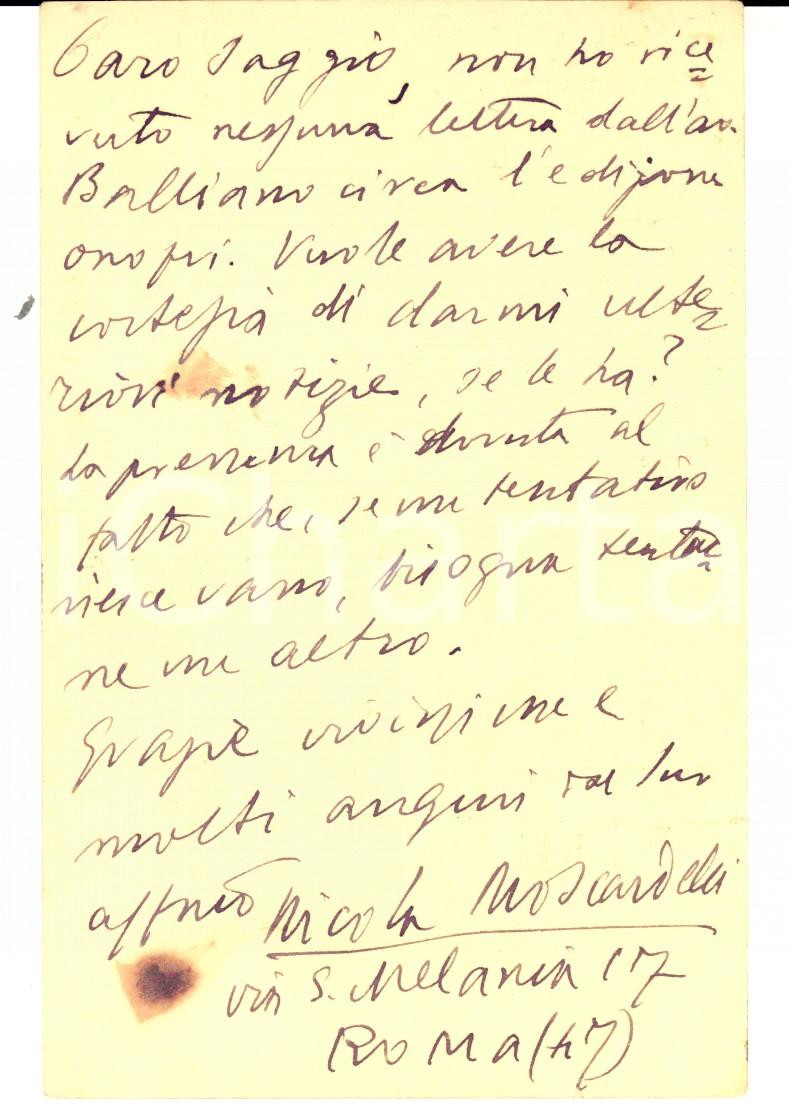 Caro Saggio, non ho rice=
vuto nessuna lettera dall'avv.
Balliano circa l'edizione
onofri. Vuole avere la
cortesia di darmi ulte=
riori notizie, se le ha?
La premura è dovuta al
fatto che, se un tentativo
riesce vano, bisogna tentar=
ne un altro.
Grazie vivissime e
molti auguri dal suo
affmo Nicola Moscardelli
via S. Melania 17
ROMA (47)
iCharta